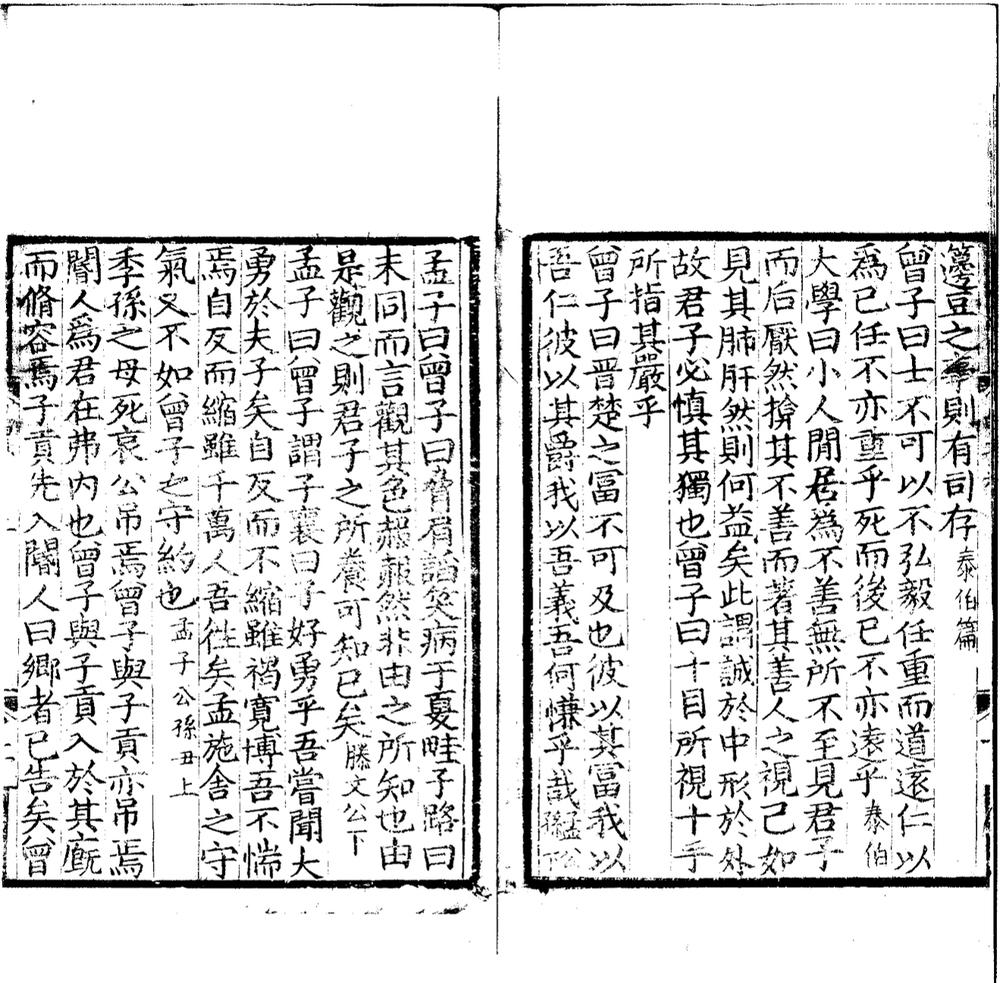 籩豆之事則有司存泰伯篇
曾子曰士不可以不弘毅任重而道遠仁以
爲己任不亦重乎死而後已不亦遠乎泰伯
大學曰小人閒居爲不善無所不至見君子
而后厭然揜其不善而著其善人之視己如
見其肺肝然則何益矣此謂誠於中形於外
故君子必慎其獨也曾子曰十目所視十手
所指其嚴乎
曾子曰晋楚之富不可及也彼以其富我以
吾仁彼以其爵我以吾義吾何慊乎哉孟
孟子曰曾子曰脅肩諂笑病于夏畦子路曰
未同而言觀其色赧赧然非由之所知也由
是觀之則君子之所養可知已矣滕文公下
孟子曰曾子謂子襄曰子好勇乎吾嘗聞大
勇於夫子矣自反而不縮雖褐寬博吾不惴
焉自反而縮雖千萬人吾徃矣孟施舍之守
氣又不如曾子之守約也孟子公孫丑上
季孫之母死哀公吊焉曾子與子貢亦吊焉
閽人爲君在弗内也曾子與子貢入於其廐
而脩容焉子貢先入閽人曰鄉者已告矣曾